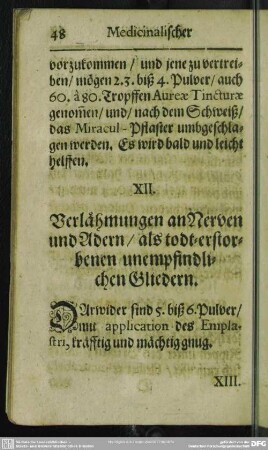 48 Medicinalischer
vorzukommen / und jene zu vertrei-
ben / mögen 2. 3. biß 4. Pulver / auch
60. à 80. Tropffen Aureæ Tincturæ
genom̃en / und / nach dem Schweiß /
das Miracul-Pflaster umbgeschla-
gen werden. Es wird bald und leicht
helffen.
XII.
Verlähmungen an Nerven
und Adern / als todt-erstor-
benen unempfindli-
chen Gliedern.
DArwider sind 5. biß 6. Pulver /
mit application des Empla-
stri, kräfftig und mächtig gnug.
XIII.
DFG